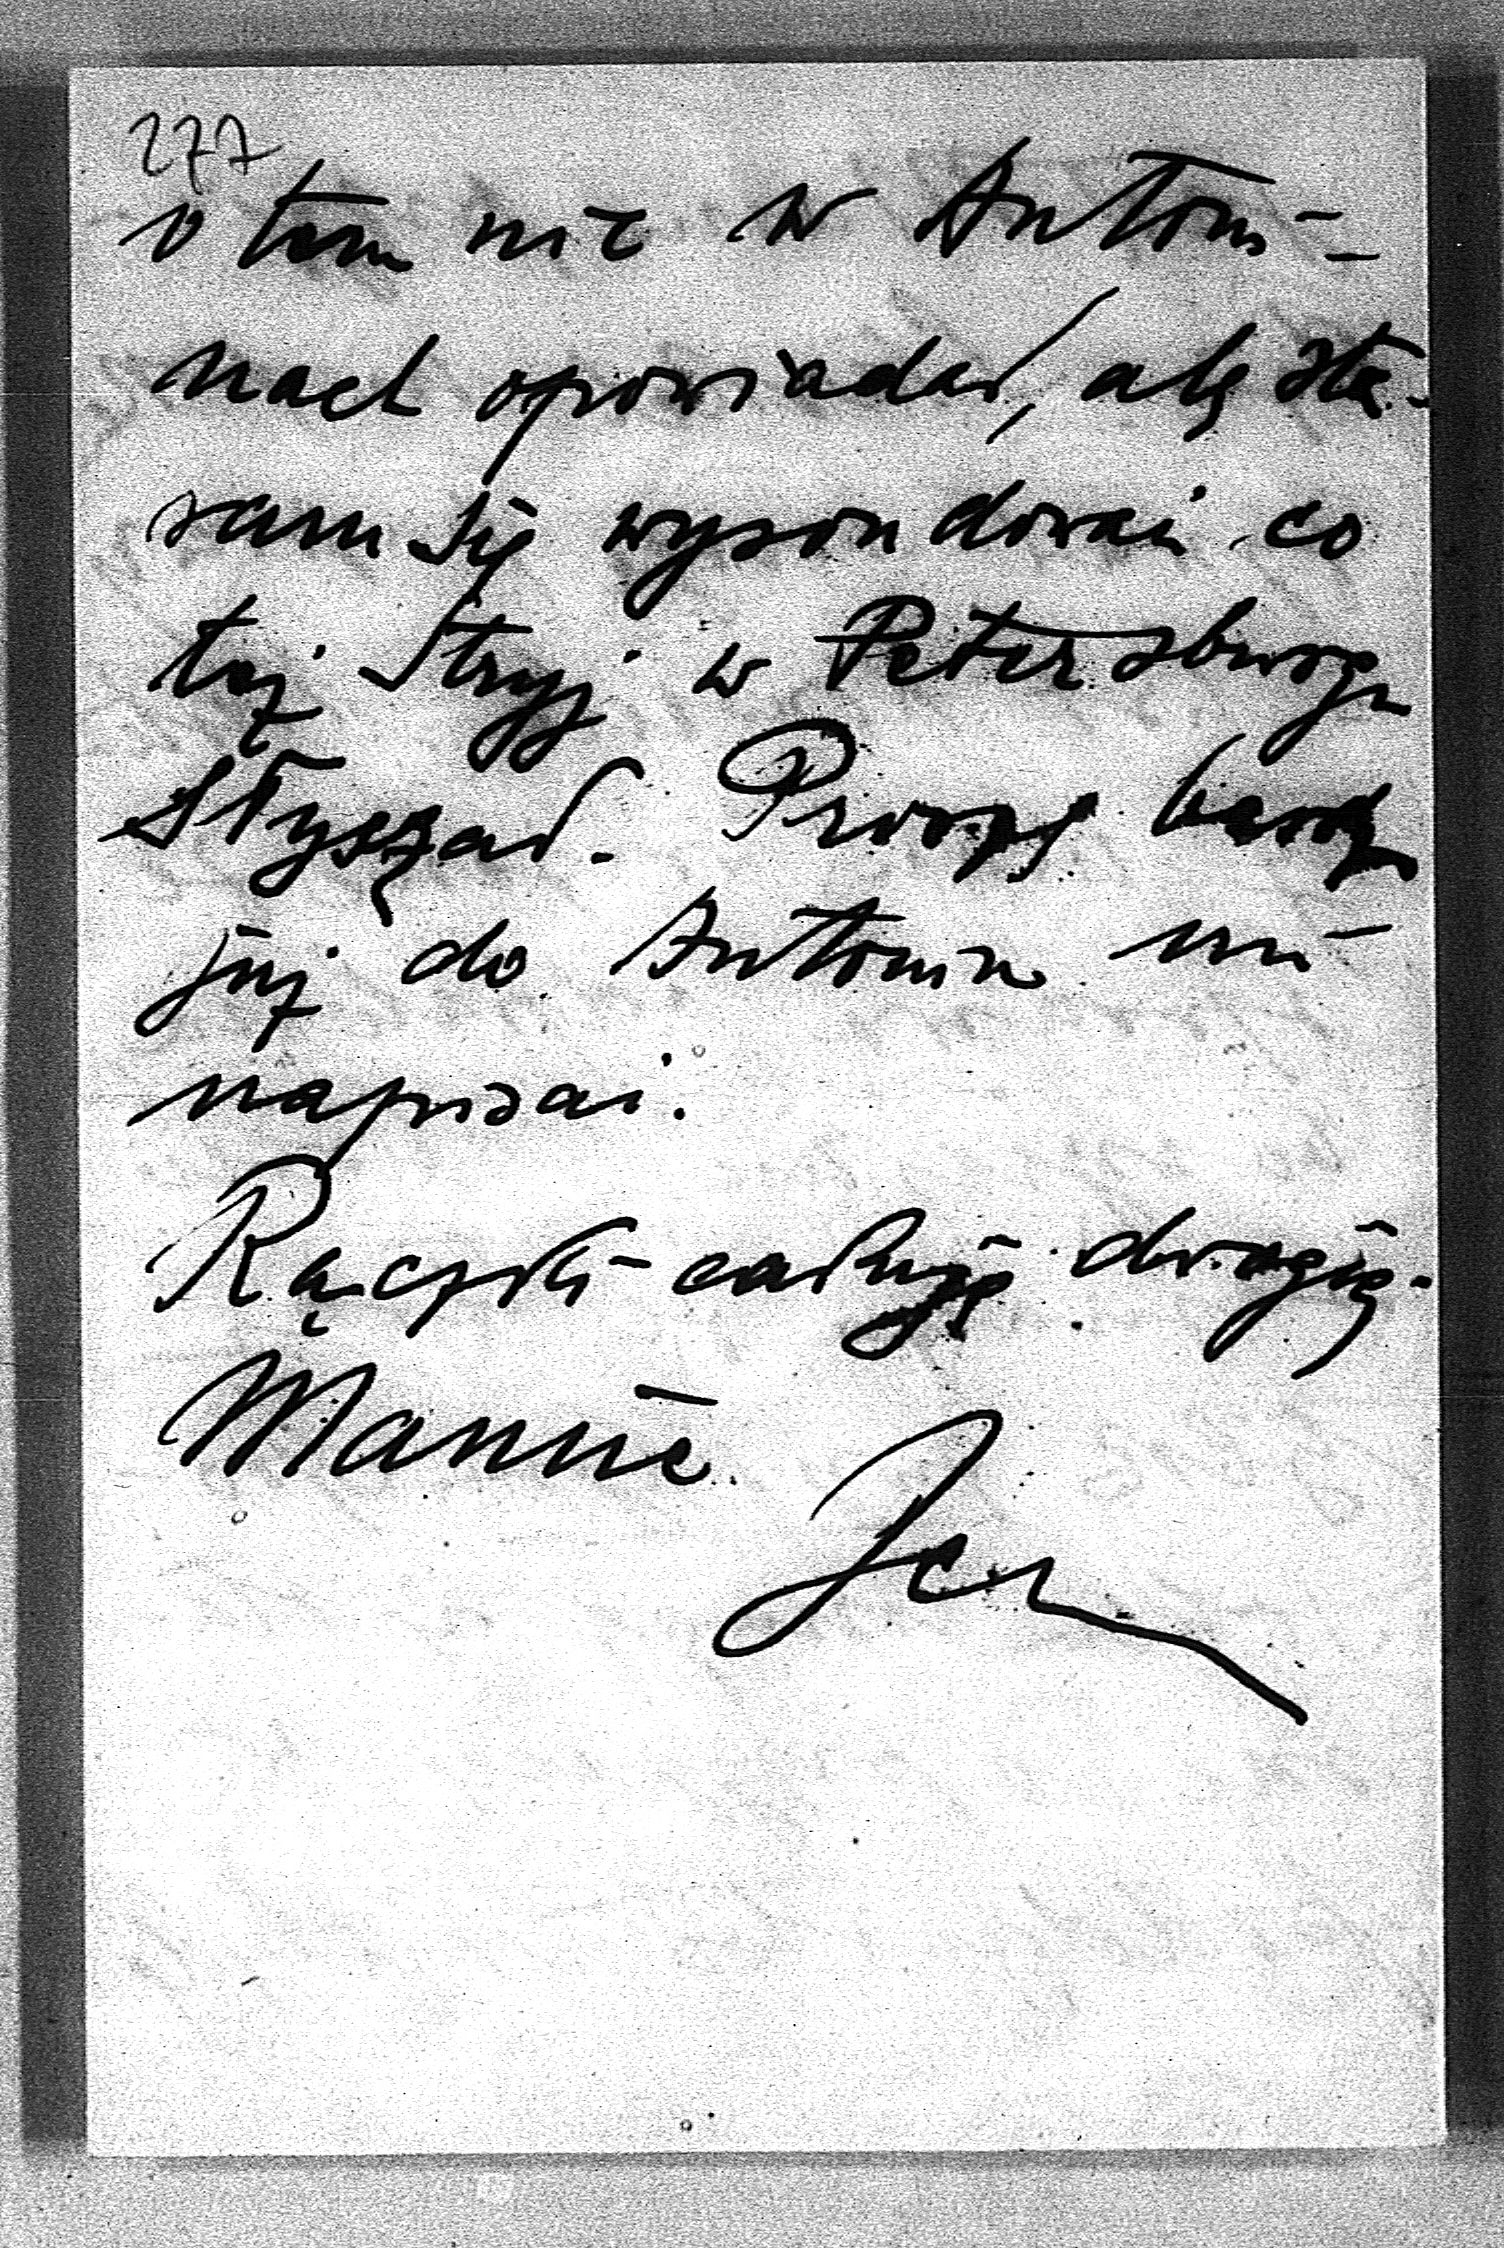 277
o tem nic w Antoni-
nach opowiadał, alę sta-
ram się wysondować co
tej Stryj w Petersburgu
słyszał. Proszę bardzo
już do Antonin mi
napisać.
Rączki całuję drogiej
Mamie. Jan